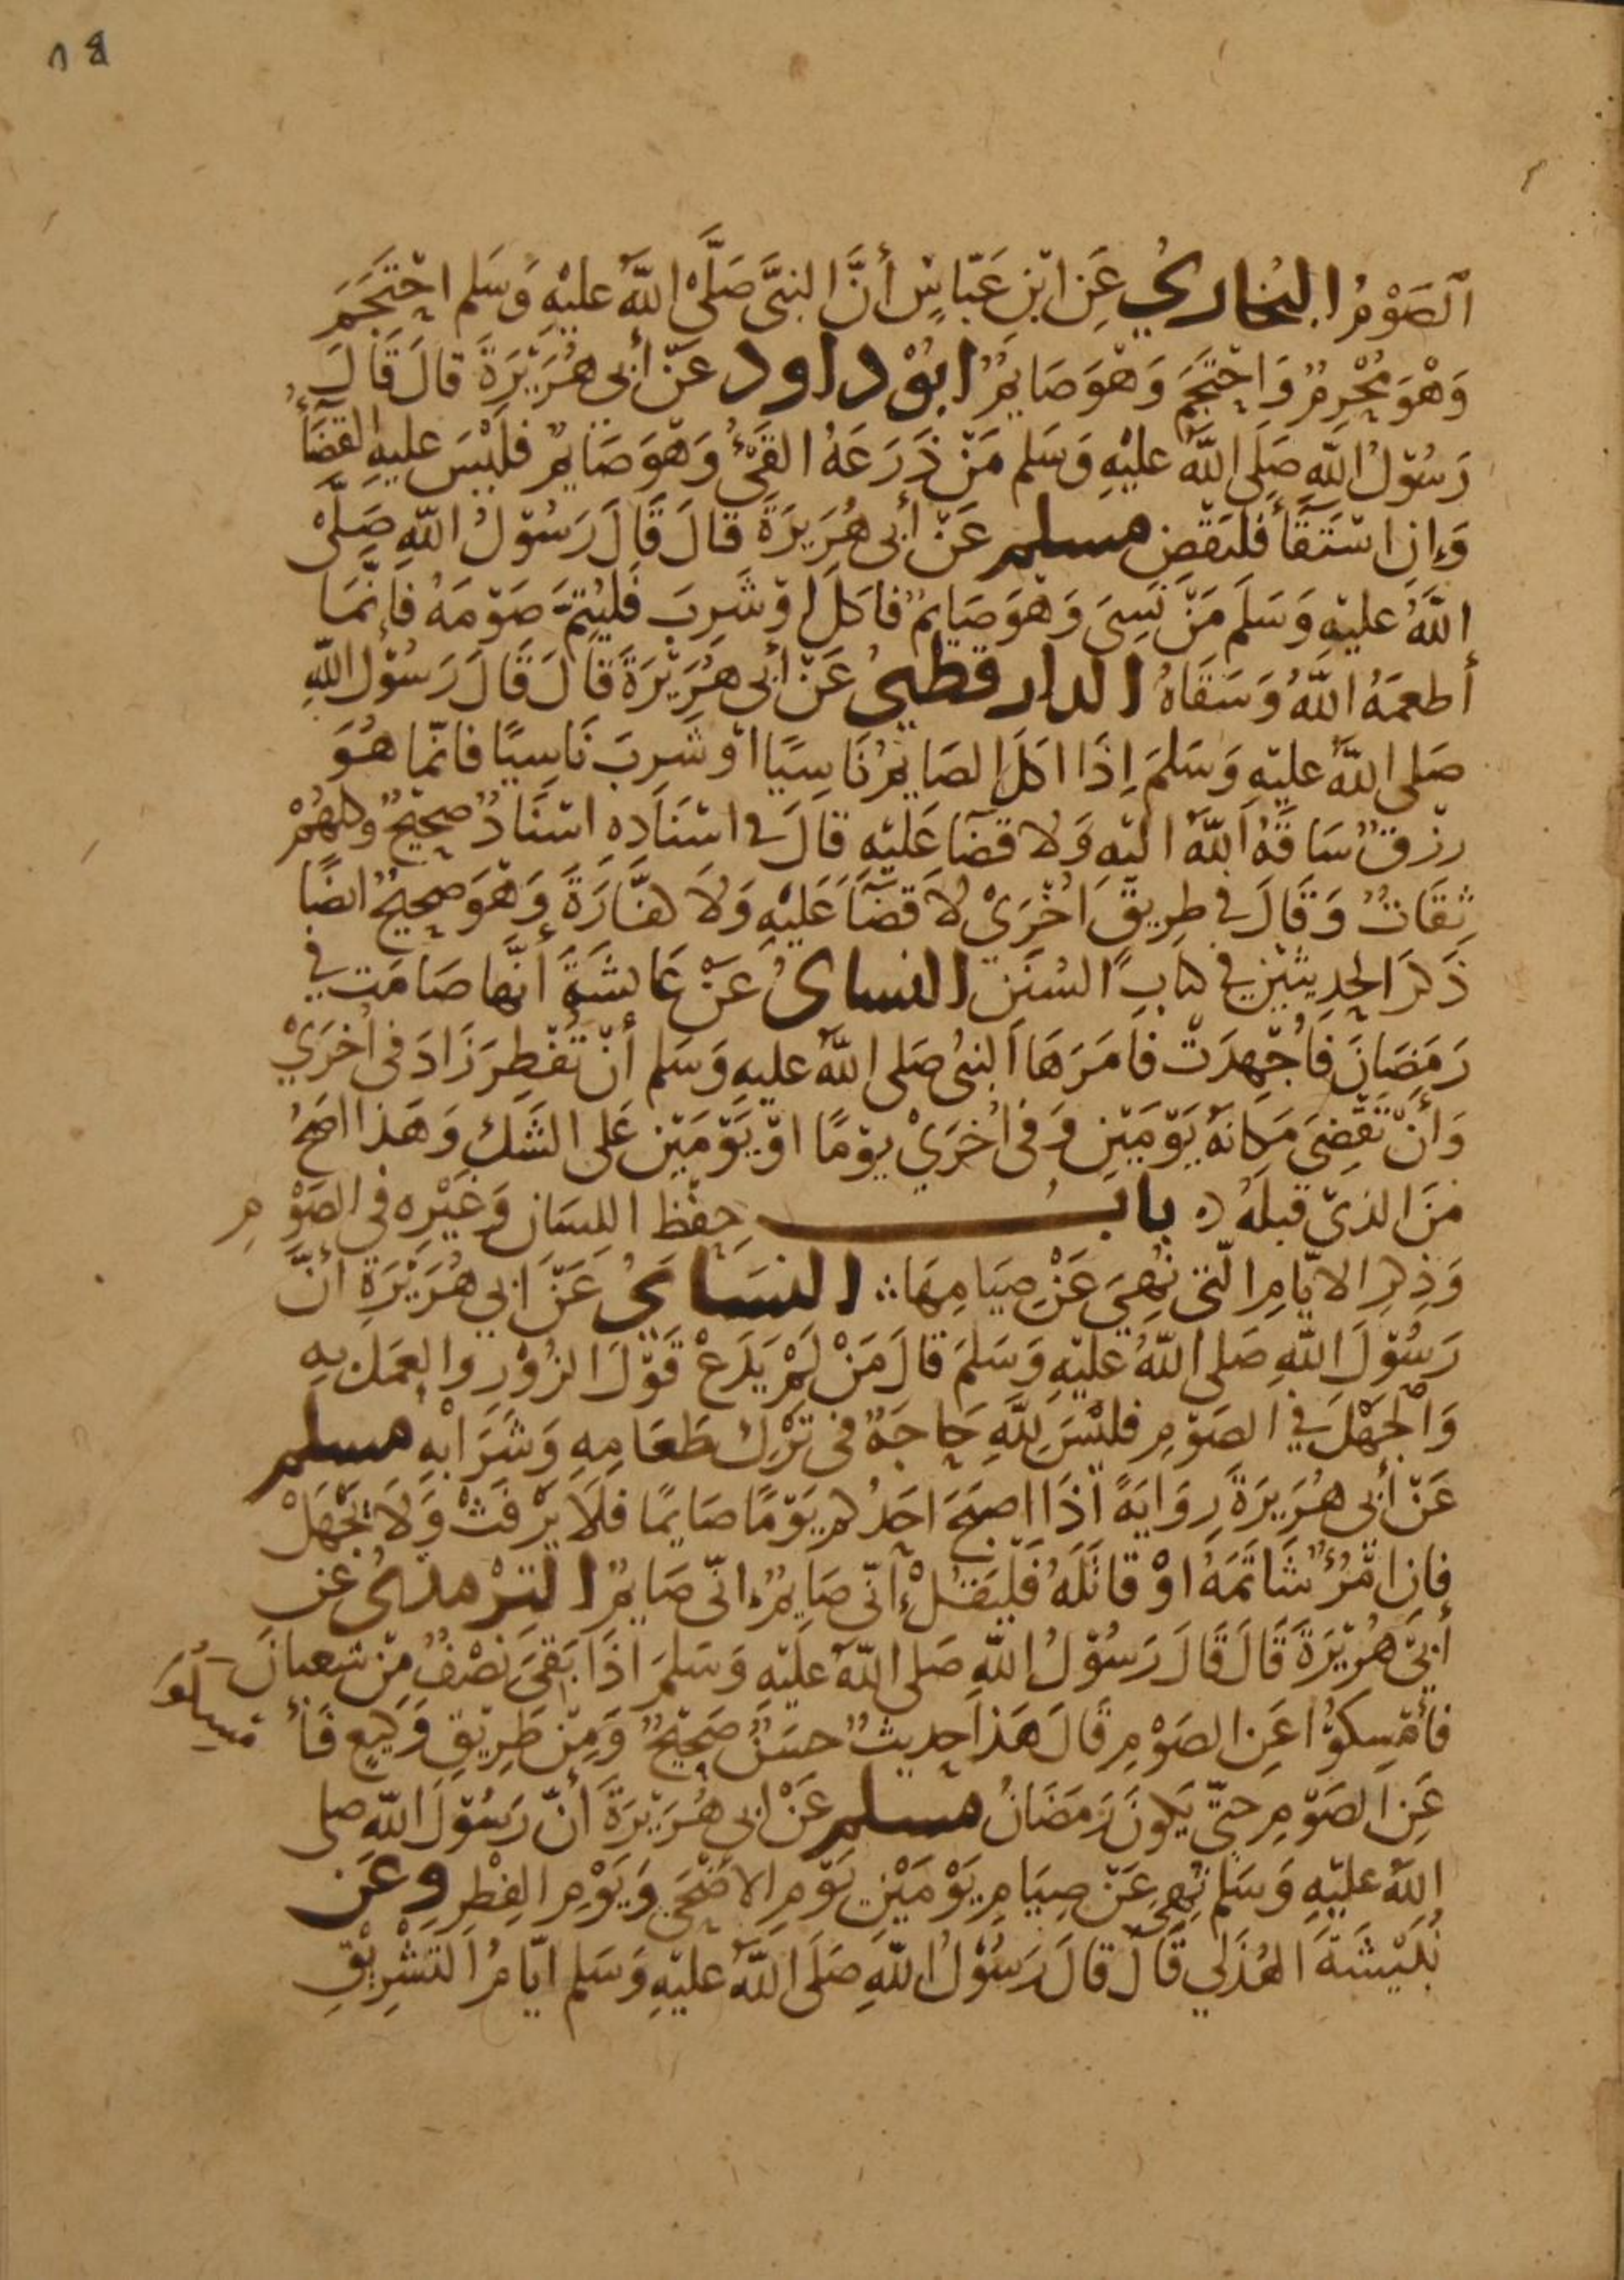 الصَّوْمُ البُخَارِيُ عَنِ ابْنِ عَبَّاسٍ أنَّ النبيَّ صَلَّى اللَّهُ عليْهِ وَسَلم احْتَجَمَ
وَهْوَ مُحْرِمٌ وَاحْتَجَمَ وَهْوَ صَايِمٌ ابُوْ داود عَنْ أبي هُرَيْرَةَ قالَ قَالَ
رَسُوْلُ اللَّهِ صَلى اللَّهُ عليْهِ وَسَلم مَنْ ذَرَعَهُ القَيْءُ وَهْوَ صَايِمٌ فلَيْسَ عليهِ القضَآءُ
وَإنِ اسْتَقَآءَ فَليَقْضِ مسلم عَنْ أبي هُرَيرَةَ قالَ قَالَ رَسُوْلُ اللهِ صَلَّى
اللَّهُ عليْهِ وَسَلَمَ مَنْ نَسِيَ وَهْوَ صَايمٌ فاكَلَ اوْ شَرِبَ فَليُتِمَّ صَوْمَهُ فَإنَّمَا
أطعمَهُ اللَّهُ وَسَقَاهُ الدارقطنيُ عَنْ أبي هُرَيْرَةَ قَالَ قَالَ رَسُوْلُ اللَّهِ
صَلى اللَّهُ عليْهِ وَسَلمَ إذَا اكَلَ الصَايمُ نَاسِيًا اوْ شَرِبَ نَاسِيًا فانَّما هُوَ
رزْقٌ سَاقَهُ اللَّهُ اليْهِ وَلا قضَآ عَليْهِ قالَ في اسْنَادِه اسْنَادٌ صحِيْحٌ وكلهُمْ
ثِقَاتٌ وَقَالَ في طرِيقٍ اخْرَىْ لا قضَآءَ عَليْهِ وَلا كفَّارَةَ وَهْوَ صحِيْحٌ ايضًا
ذَكَرَ الحدِيثيْنِ في كتابِ السُنَنِ النساىُ عَنْ عَايشَةَ أنَّها صَامَت في
رَمَضَانَ فاُجْهِدَتْ فامَرَهَا النبيُ صَلى اللَّهُ عليهِ وَسَلم أنْ تُفْطِرَ زَادَ في أُخْرَيْ
وَأنْ تَقْضِيَ مَكانَهُ يَوْمَيْنِ وَفي اُخْرَيْ يوْمًا اوْ يَوْمَيْنِ عَلى الشَّكِ وَهَذا اصَحُ
منَ الذيْ قبْلهُ بابُ حِفْظِ اللِسَانِ وَغيْرِهِ في الصَوْمِ
وَذِكرِ الايَّامِ الَّتي نُهِيَ عَنْ صِيَامِهَا النسَايُ عَنْ ابي هُرَيْرَةَ أنَّ
رَسُوْلَ اللَّهِ صَلى اللَّهُ عليْهِ وَسَلمَ قالَ مَنْ لَمْ يَدَعْ قَوْلَ الزُوْرِ والعمَلَ بهِ
وَالْجَهْلَ في الصَوْمِ فليْسَ لِلَّهِ حَاجَةٌ في تَرْكِ طَعَامِهِ وَشَرَابِهِ مسلم
عَنْ أبي هُرَيرَةَ رِوَايَةً اذَا اصبَحَ احَدُكم يَوْمًا صَايمًا فلَا يَرْفَثْ وَلَا يَجْهَلْ
فإنِ امْرُؤٌ شَاتَمَهُ اوْ قاتَلَهُ فَلْيَقُلْ إنّي صَايمٌ إنّي صَايمٌ التِرْمذيُ عن
أبيْ هُرَيْرَةَ قَالَ قَالَ رَسُوْلُ اللَّهِ صَلى اللَّهُ عليْهِ وَسَلمَ اذَا بَقيَ نصْفٌ مِنْ شعبانَ
فأمْسِكوُا عَنِ الصَوْمِ قَالَ هَذا حديثٌ حسَنٌ صَحِيْحٌ وَمِنْ طَرِيْقِ وَكيعٍ فَأمْسِكُوا
عَنِ الصَوْمِ حتَّى يَكونَ رَمَضَانُ مسلم عَنْ ابي هُرَيْرَةَ أنَّ رَسُوْلَ اللَّهِ صلى
اللَّهُ عليْهِ وَسَلم نُهِيَ عَنْ صِيَامِ يَوْمَيْنِ يَوْمِ الاضْحَى وَيَوْمِ الفِطْرِ وعَن
نُبَيْشَةَ الهُذَلي قَالَ قالَ رَسُوْلُ اللَّهِ صَلَى اللَّهُ عليْهِ وَسَلم ايَّامُ التشْرِيْقِ